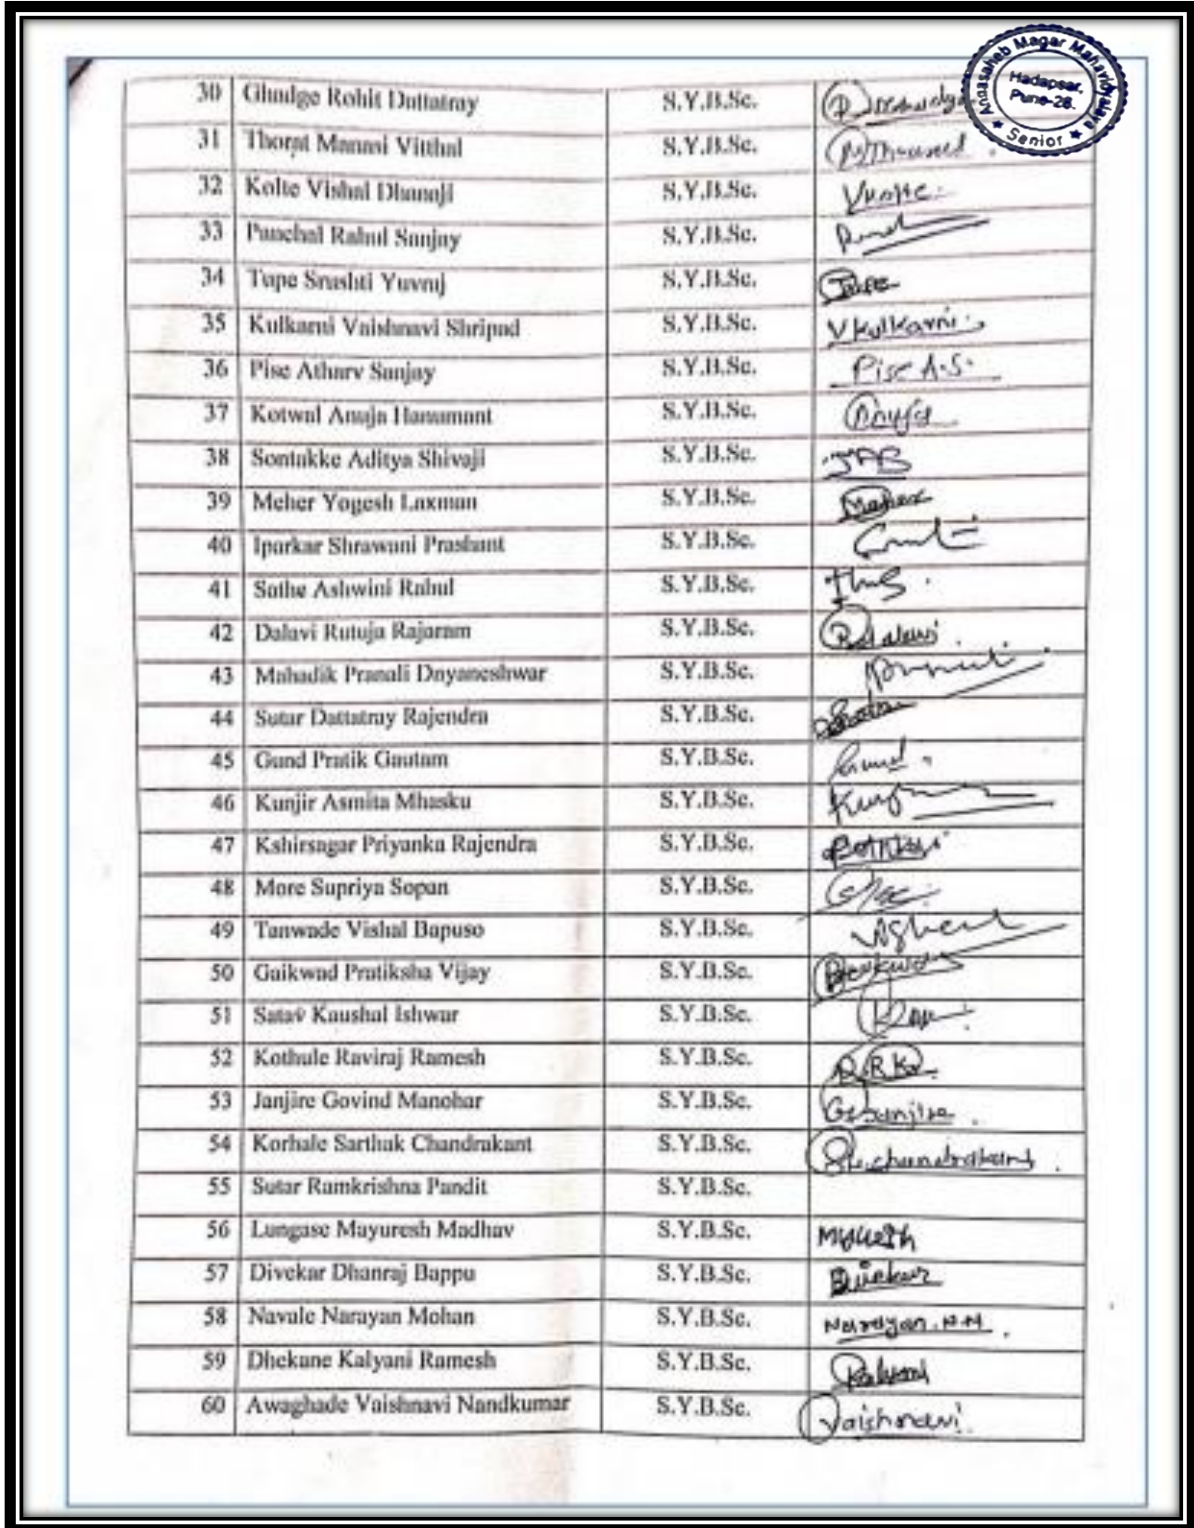 Annasaheb Magar Mahavidyalaya
Hadapsar,
Pune-28.
★ Senior ★
30 Ghadge Rohit Dattatray S.Y.B.Sc.
31 Thorat Manasi Vitthal S.Y.B.Sc.
32 Kolte Vishal Dhanaji S.Y.B.Sc.
33 Panchal Rahul Sanjay S.Y.B.Sc.
34 Tupe Srushti Yuvraj S.Y.B.Sc.
35 Kulkarni Vaishnavi Shripad S.Y.B.Sc. VKulkarni
36 Pise Atharv Sanjay S.Y.B.Sc. Pise A.S.
37 Kotwal Anuja Hanumant S.Y.B.Sc. Anuja
38 Sontakke Aditya Shivaji S.Y.B.Sc.
39 Meher Yogesh Laxman S.Y.B.Sc. Meher
40 Iparkar Shrawani Prashant S.Y.B.Sc.
41 Sathe Ashwini Rahul S.Y.B.Sc.
42 Dalavi Rutuja Rajaram S.Y.B.Sc. RDalavi
43 Mahadik Pranali Dnyaneshwar S.Y.B.Sc.
44 Sutar Dattatray Rajendra S.Y.B.Sc.
45 Gund Pratik Gautam S.Y.B.Sc.
46 Kunjir Asmita Mhasku S.Y.B.Sc.
47 Kshirsagar Priyanka Rajendra S.Y.B.Sc.
48 More Supriya Sopan S.Y.B.Sc.
49 Tanwade Vishal Bapuso S.Y.B.Sc.
50 Gaikwad Pratiksha Vijay S.Y.B.Sc.
51 Satav Kaushal Ishwar S.Y.B.Sc.
52 Kothule Raviraj Ramesh S.Y.B.Sc.
53 Janjire Govind Manohar S.Y.B.Sc.
54 Korhale Sarthak Chandrakant S.Y.B.Sc.
55 Sutar Ramkrishna Pandit S.Y.B.Sc.
56 Lungase Mayuresh Madhav S.Y.B.Sc.
57 Divekar Dhanraj Bappu S.Y.B.Sc. Divekar
58 Navale Narayan Mohan S.Y.B.Sc. Narayan.N.M.
59 Dhekane Kalyani Ramesh S.Y.B.Sc. Kalyani
60 Awaghade Vaishnavi Nandkumar S.Y.B.Sc. Vaishnavi